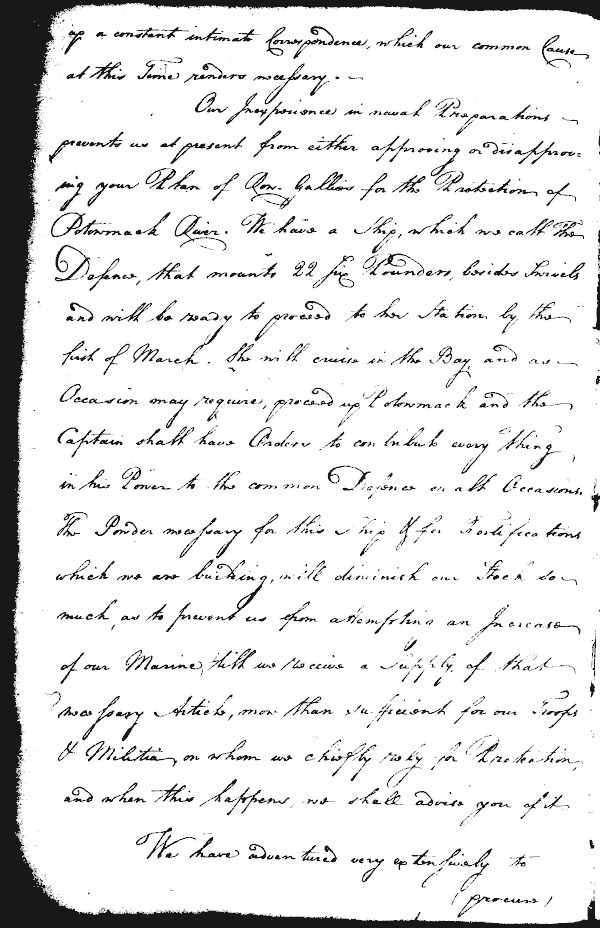 up a constant intimate Correspondence, which our common Cause
at this Time renders necessary. —
Our Inexperience in naval Preparations
prevents us at present from either approving or disapprov-
ing your Plan of Row-Gallies for the Protection of
Potowmack River. We have a Ship, which we call the
Defence, that mounts 22 six Pounders, besides Swivels
and will be ready to proceed to her Station by the
first of March. She will cruise in the Bay, and as
Occasion may require, proceed up Potowmack and the
Captain shall have Orders to contribute every thing
in his Power to the common Defence on all Occasions.
The Powder necessary for this Ship & for Fortifications
which we are building, will diminish our Stock so
much, as to prevent us from attempting an Increase
of our Marine, till we receive a Supply of that
necessary Article, more than sufficient for our Troops
& Militia, on whom we chiefly rely for Protection,
and when this happens, we shall advise you of it
We have adventured very extensively to
(procure)